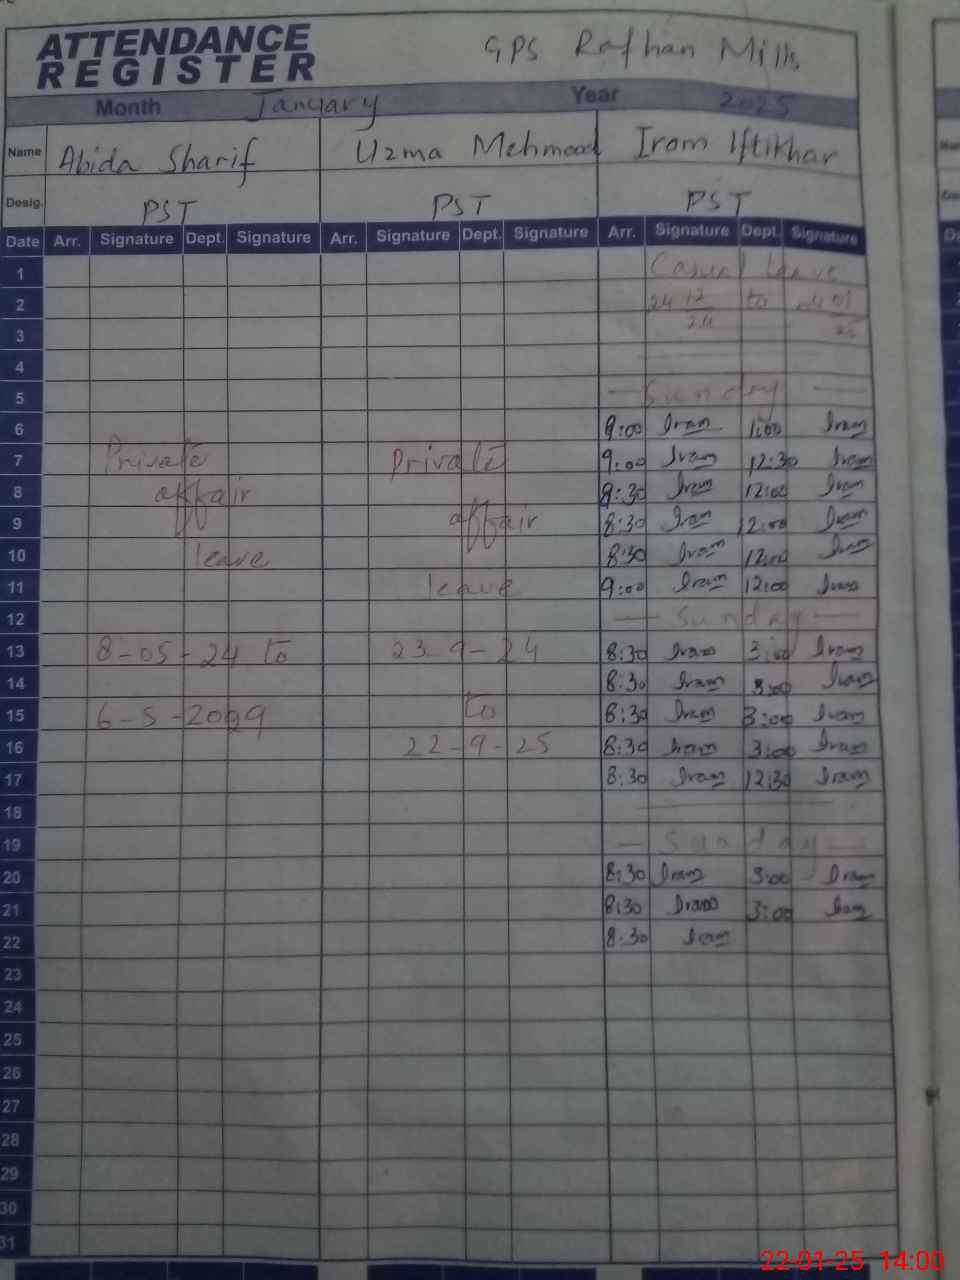 ATTENDANCE REGISTER GPS Rafhan Mills
Month January Year 2025
Name Abida Sharif Uzma Mehmood Iram Iftikhar
Desig. PST PST PST
Date Arr. Signature Dept. Signature Arr. Signature Dept. Signature Arr. Signature Dept. Signature
1 Casual leave
2 24 12 to 01
3 24 25
4
5 — Sunday —
6 9:00 Iram 1:00 Iram
7 Private Private 9:00 Iram 12:30 Iram
8 affair 9:30 Iram 12:00 Iram
9 affair 8:30 Iram 12:00 Iram
10 leave 8:30 Iram 12:00 Iram
11 leave 9:00 Iram 12:00 Iram
12 — Sunday —
13 8-05-24 to 23-9-24 8:30 Iram 3:00 Iram
14 8:30 Iram 3:00 Iram
15 6-5-2029 to 8:30 Iram 3:00 Iram
16 22-9-25 8:30 Iram 3:00 Iram
17 8:30 Iram 12:30 Iram
18
19 — Sunday —
20 8:30 Iram 3:00 Iram
21 8:30 Iram 3:00 Iram
22 8:30 Iram
23
24
25
26
27
28
29
30
31
22-01-25 14:00